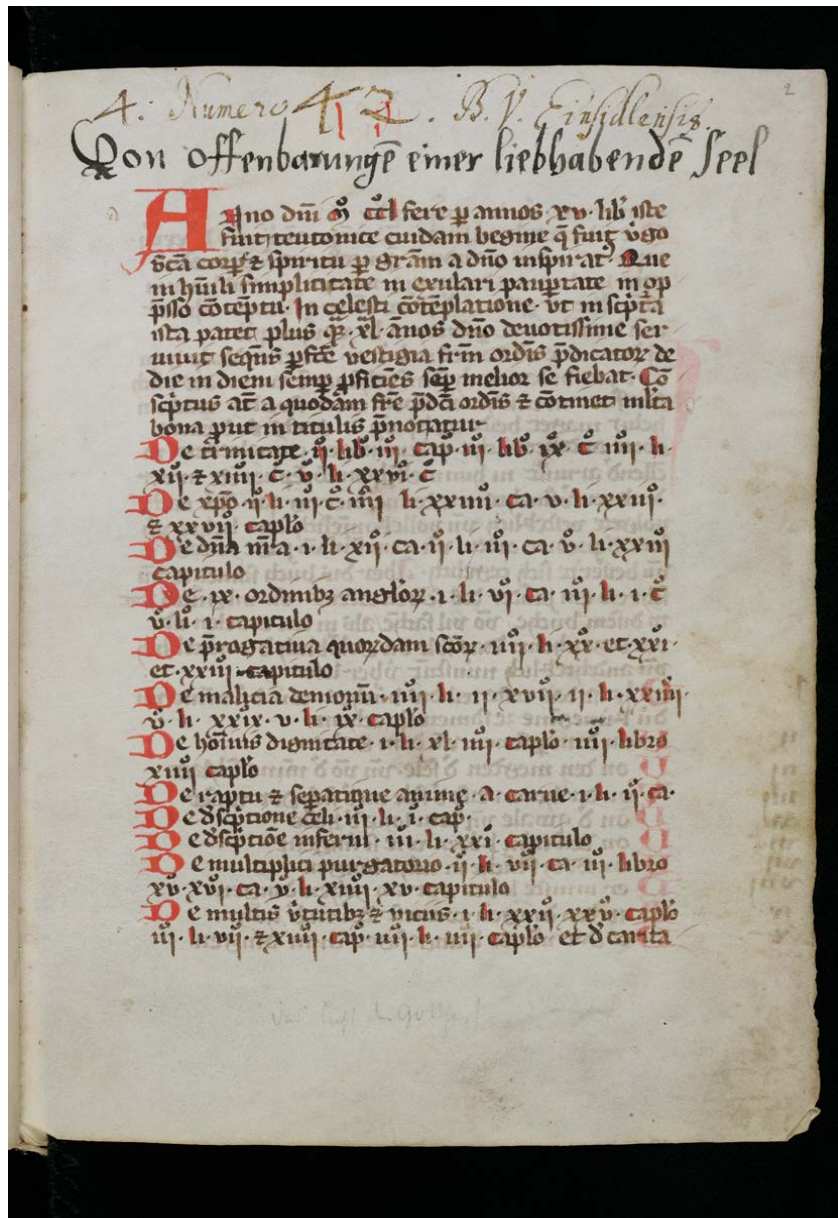 2
4. Numero 42. B. V. Einsidlensis.
Von offenbarungē einer liebhabendē Seel
Anno dn̄i m̊ ccl̊ fere ꝑ annos xv · lib̊ iste
fuit teutonice cuidam begine q̄ fuit v̊go
sc̄a corꝑe ⁊ spiritu ꝑ grām a dn̄o inspirat · Que
in hūili simplicitate in exulari pauꝑtate in op
p̄sso cōtēptu · In celesti cōtēplatione · vt in scpt̄a
ista patet plus qͣ · xl · ānos dn̄o deuotissime ser
uiuit sequēs ꝑfc̄e vestigia frm̄ ordīs p̄dicatorꝝ de
die in diem semꝑ ꝓficiēs semꝑ melior se fiebat · Cō
scptus at̄ a quodam fr̄e p̄dc̄i ordīs ⁊ cōtinet ml̄ta
bona put in titulis p̄notatur
De t̄initate · ij · lib̊ · iij · cap̊ · iij · lib̊ · ix · c̊ · iiij · li ·
xij · ⁊ xiiij · c̄ · v̊ · li · xxvi · c̄
De xp̄o · ij · li · iij · c̊ · iiij · li · xxiiij · ca · v · li · xxiij ·
⁊ xxvij · capl̊o
De dn̄a nr̄a · i · li · xij · ca · ij · li · iij · ca · v̊ · li · xxiij
capitulo
De · ix · ordinibꝫ angl̊orꝝ · i · li · vi̊ · ca · iij · li · i · c̄
v̊ · li · i · capitulo
De p̄rogatiua quorūdam sc̄orꝝ · iiij · li · xx · et xxi ·
et · xxiij · capitulo
De malicia demonū · iiij · li · ij · xvij · ij · li · xxiiij ·
v̊ · li · xxix · v · li · ix · capl̊o
De hoīnis dignitate · i · li · xl · iiij · capl̊o · iiij · libro
xiiij capl̊o
De raptu ⁊ seꝑatique anime · a carne · i · li · ij · ca ·
De dscp̄tione celi · iij · li · i · cap ·
De dscp̄tiōe inferni · iij · li · xxi · capitulo
De multiplici purgatorio · ij · li · vij · ca · iij · libro
xv · xvi · ca · v̊ · li · xiiij · xv · capitulo
De multis v̊tutibꝫ ⁊ vicijs · i · li · xxij · xxv̊ · capl̊o
iij · li · vij · ⁊ xiiij · cap̊ · iiij · li · iiij · capl̊o et d̊ carita